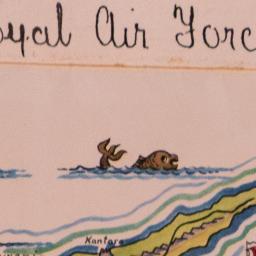 oyal Air Forc
Kantara